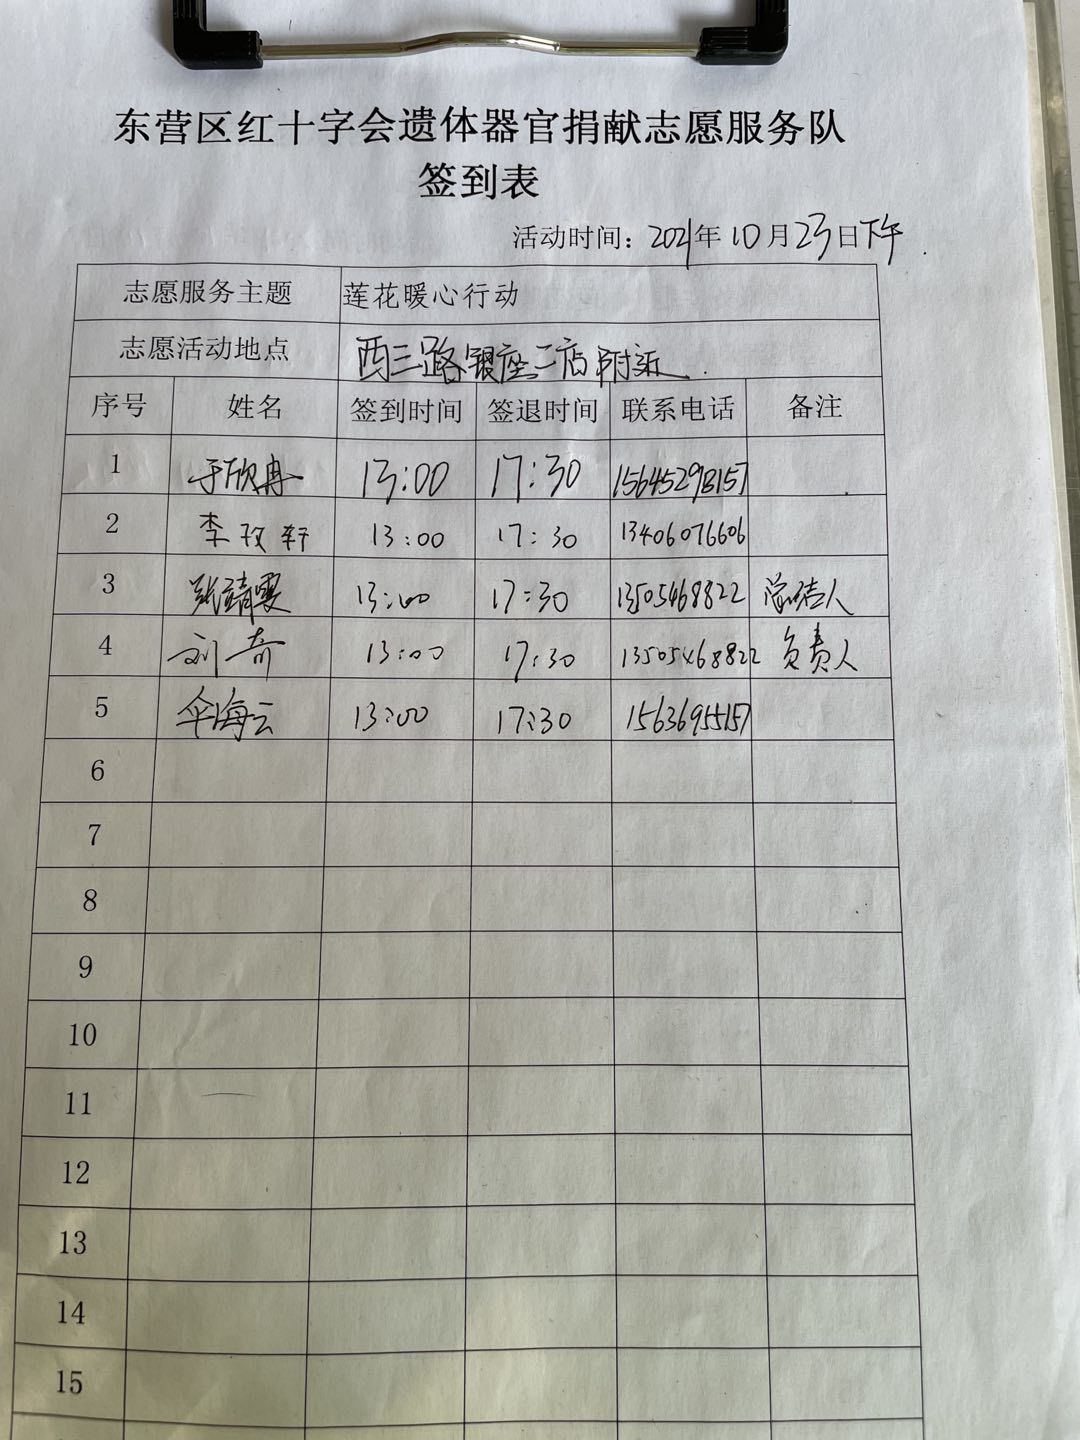 东营区红十字会遗体器官捐献志愿服务队
签到表
活动时间：2021年10月23日下午
志愿服务主题 莲花暖心行动
志愿活动地点 西三路银座二店附近
序号 姓名 签到时间 签退时间 联系电话 备注
1 于欣冉 13:00 17:30 15645298157
2 李孜轩 13:00 17:30 13406076606
3 张靖雯 13:00 17:30 13505468822 总结人
4 刘奇 13:00 17:30 13505468822 负责人
5 伞海云 13:00 17:30 15636955157
6
7
8
9
10
11
12
13
14
15